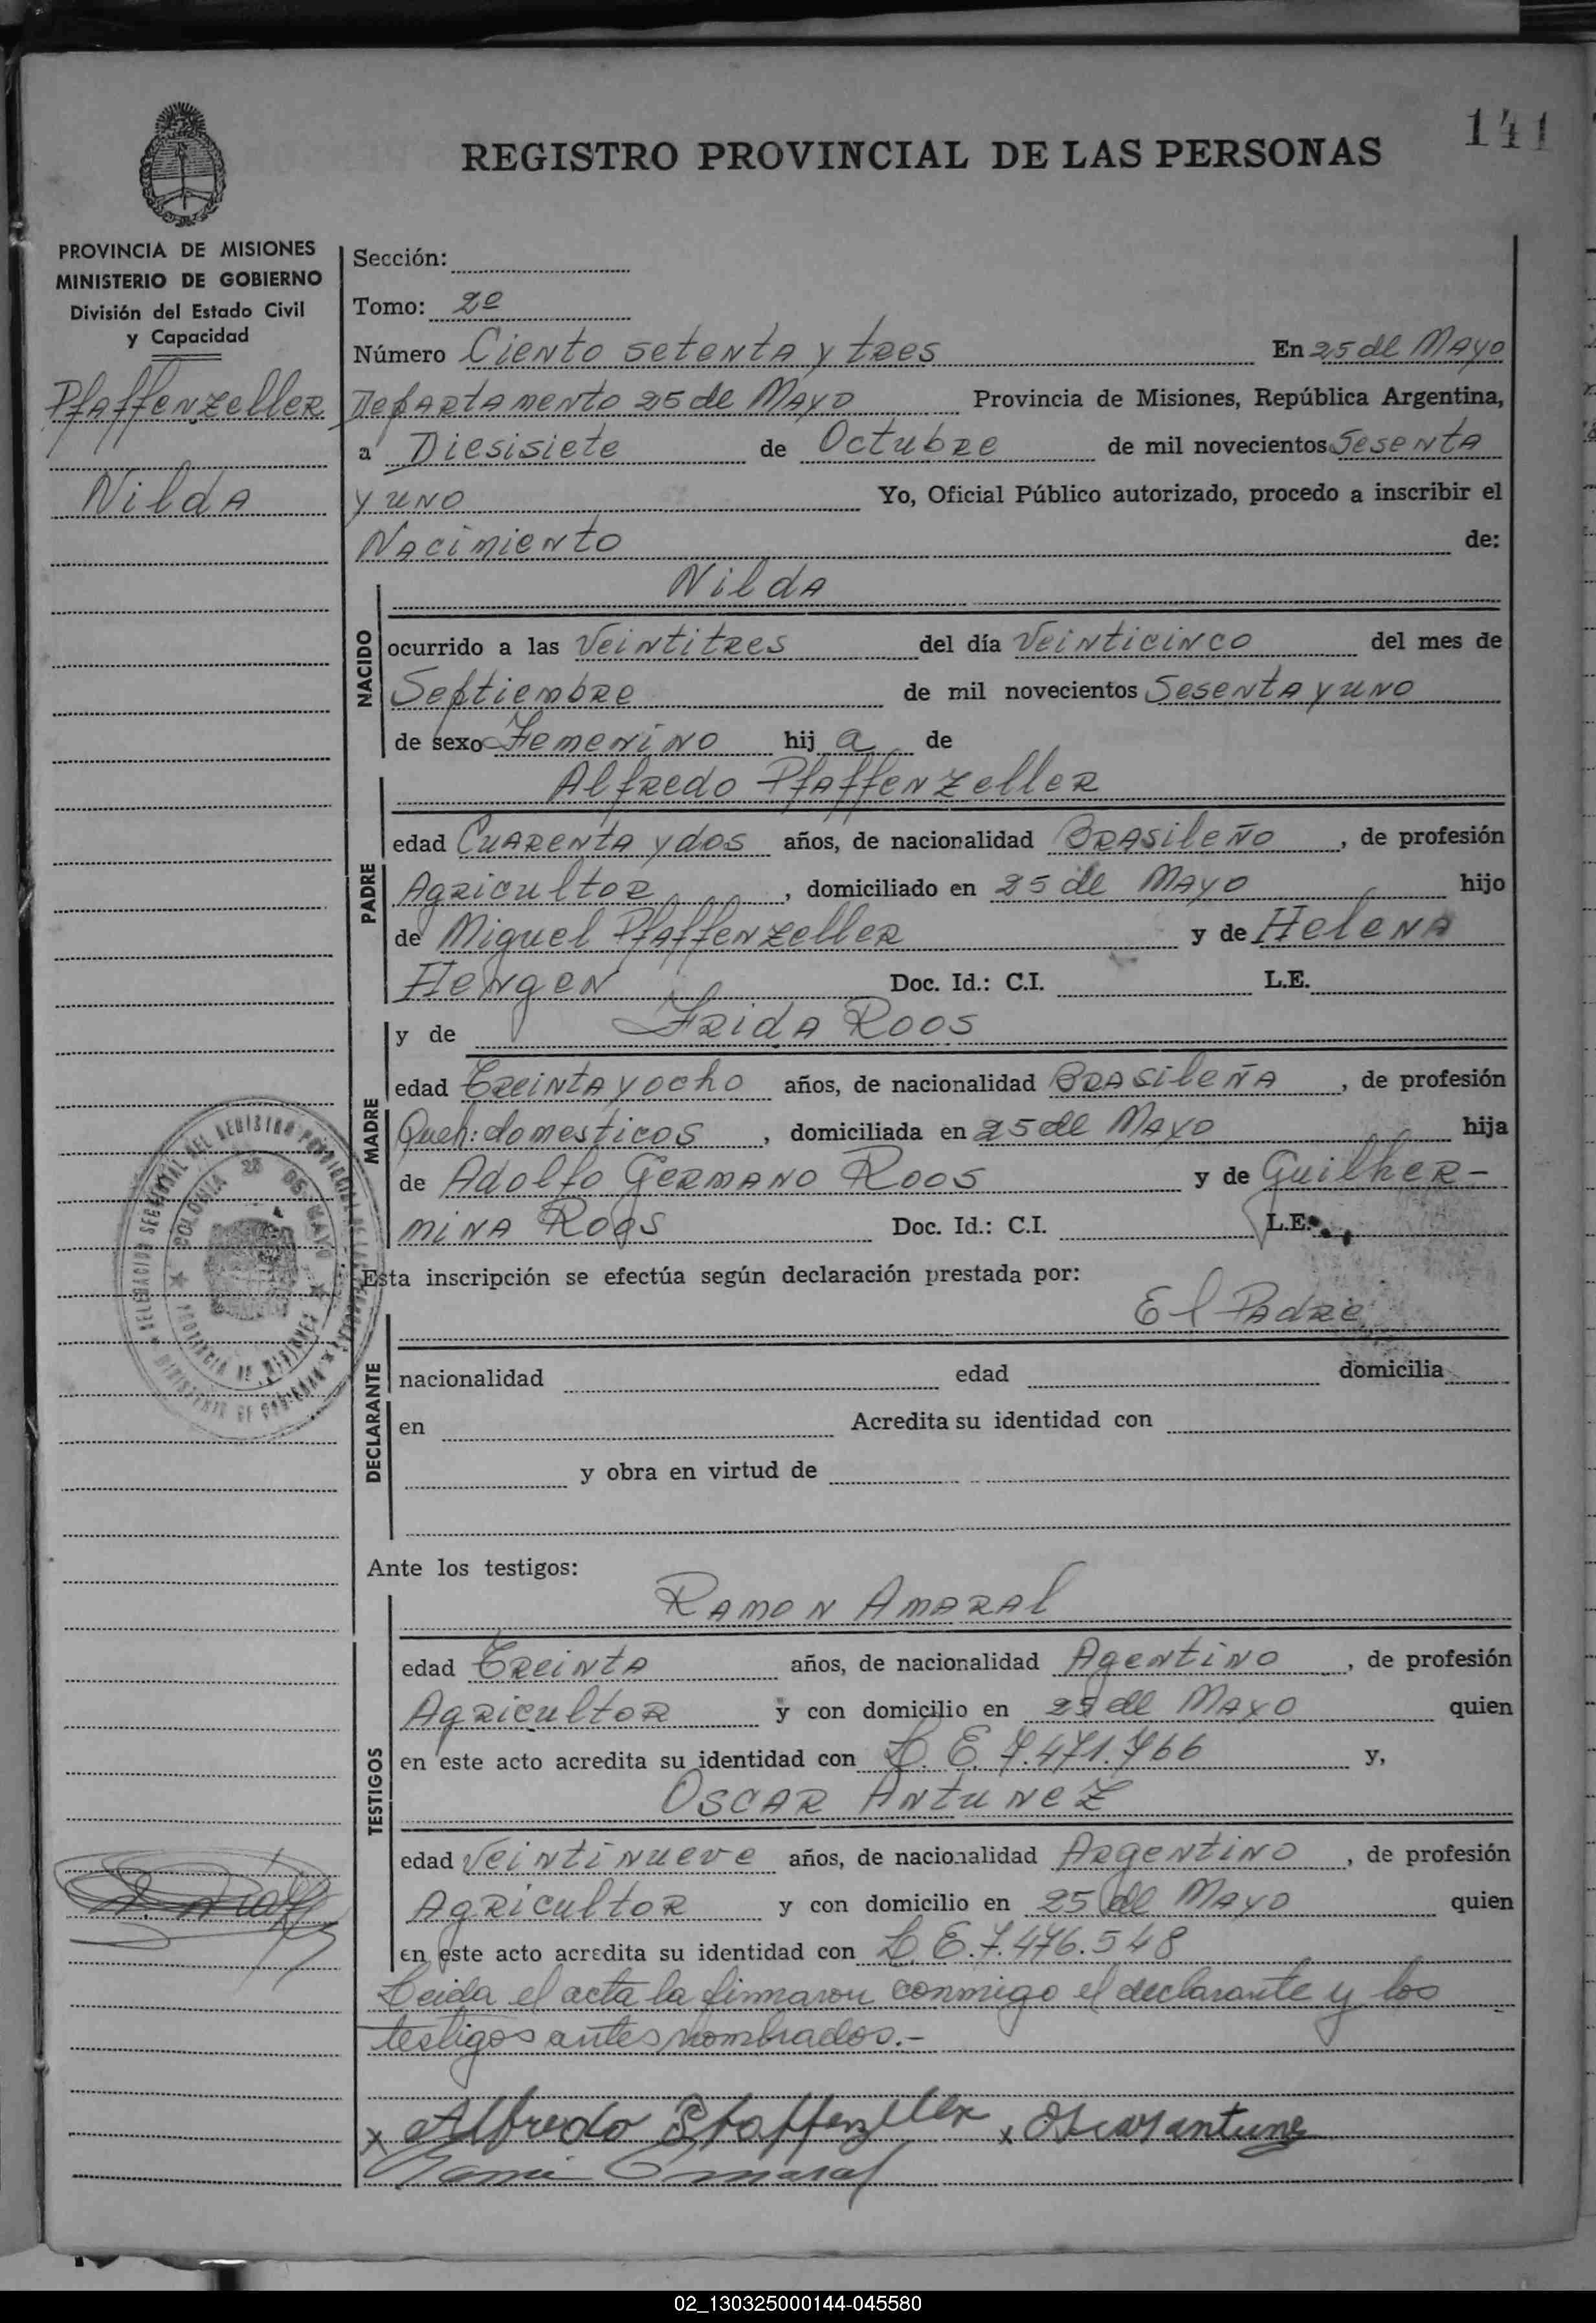 141
REGISTRO PROVINCIAL DE LAS PERSONAS
PROVINCIA DE MISIONES
MINISTERIO DE GOBIERNO
División del Estado Civil
y Capacidad
Pfaffenzeller
Nilda
Sección:
Tomo: 2º
Número Ciento setenta y tres En 25 de Mayo
Departamento 25 de Mayo Provincia de Misiones, República Argentina,
a Diesisiete de Octubre de mil novecientos Sesenta
y uno Yo, Oficial Público autorizado, procedo a inscribir el
Nacimiento de:
Nilda
NACIDO
ocurrido a las Veintitres del día Veinticinco del mes de
Septiembre de mil novecientos Sesenta y uno
de sexo Femenino hij a de
Alfredo Pfaffenzeller
PADRE
edad Cuarenta y dos años, de nacionalidad Brasileño, de profesión
Agricultor, domiciliado en 25 de Mayo hijo
de Miguel Pfaffenzeller y de Helena
Hengen Doc. Id.: C.I. L.E.
y de Frida Roos
MADRE
edad Treinta y ocho años, de nacionalidad Brasileña, de profesión
Queh: domesticos, domiciliada en 25 de Mayo hija
de Adolfo Germano Roos y de Guilher-
mina Roos Doc. Id.: C.I. L.E.
Esta inscripción se efectúa según declaración prestada por:
El Padre
DECLARANTE
nacionalidad edad domicilia
en Acredita su identidad con
y obra en virtud de
Ante los testigos:
Ramon Amaral
TESTIGOS
edad Treinta años, de nacionalidad Agentino, de profesión
Agricultor y con domicilio en 25 de Mayo quien
en este acto acredita su identidad con L. E. 7.471.766 y,
Oscar Antunez
edad Veintinueve años, de nacionalidad Argentino, de profesión
Agricultor y con domicilio en 25 de Mayo quien
en este acto acredita su identidad con L. E. 7.476.548
Leida el acta la firmaron conmigo el declarante y los
testigos antes nombrados.-
x Alfredo Pfaffenzeller x Oscar antune
Amaral
COLONIA 25 DE MAYO
PROVINCIA DE MISIONES
02_130325000144-045580